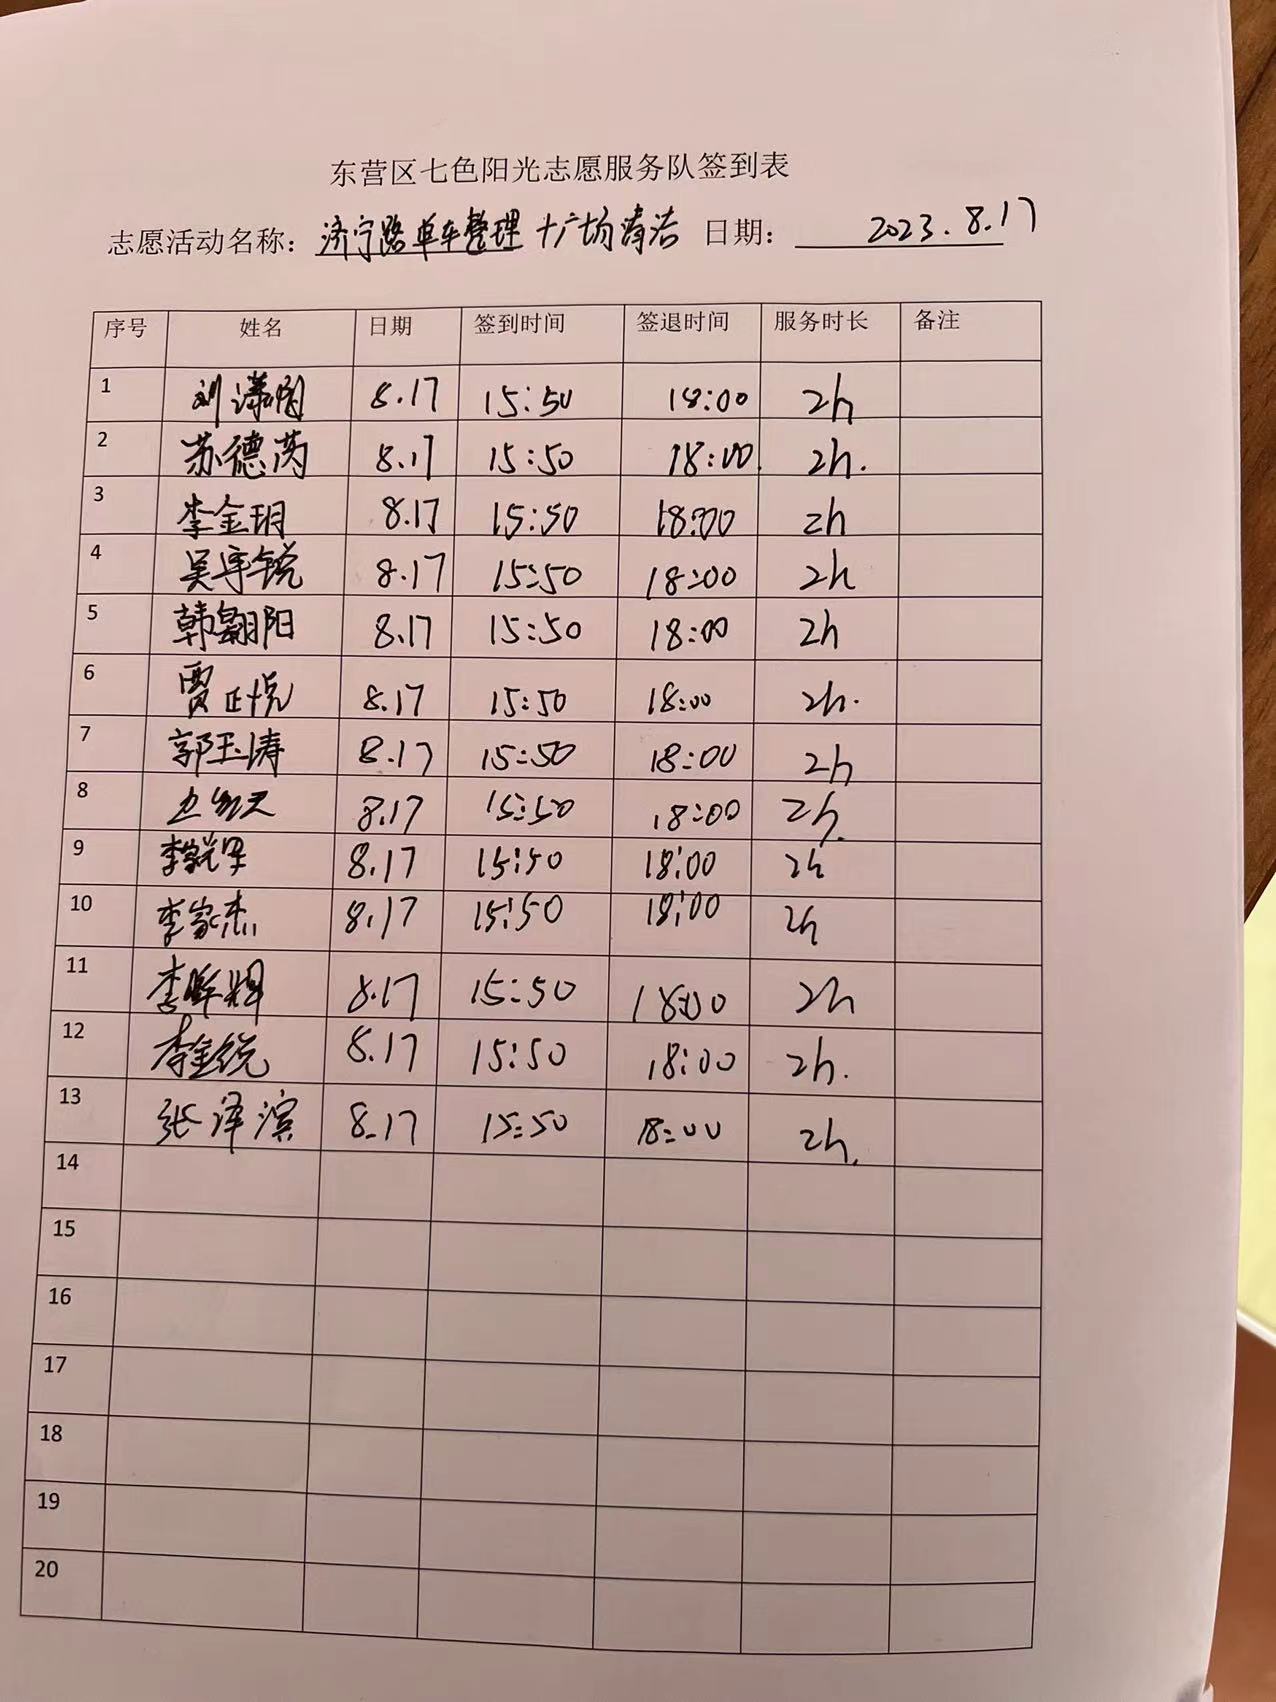 东营区七色阳光志愿服务队签到表
志愿活动名称：济宁路单车整理+广场清洁 日期：2023.8.17
序号 姓名 日期 签到时间 签退时间 服务时长 备注
1 刘潇 8.17 15:50 18:00 2h
2 苏德芮 8.17 15:50 18:00 2h.
3 李金玥 8.17 15:50 18:00 2h
4 吴宇锐 8.17 15:50 18:00 2h
5 韩翱阳 8.17 15:50 18:00 2h
6 贾正悦 8.17 15:50 18:00 2h.
7 郭玉涛 8.17 15:50 18:00 2h
8 8.17 15:50 18:00 2h.
9 李 8.17 15:50 18:00 2h
10 李家杰 8.17 15:50 18:00 2h
11 李辉 8.17 15:50 18:00 2h
12 李金锐 8.17 15:50 18:00 2h.
13 张泽滨 8.17 15:50 18:00 2h.
14
15
16
17
18
19
20